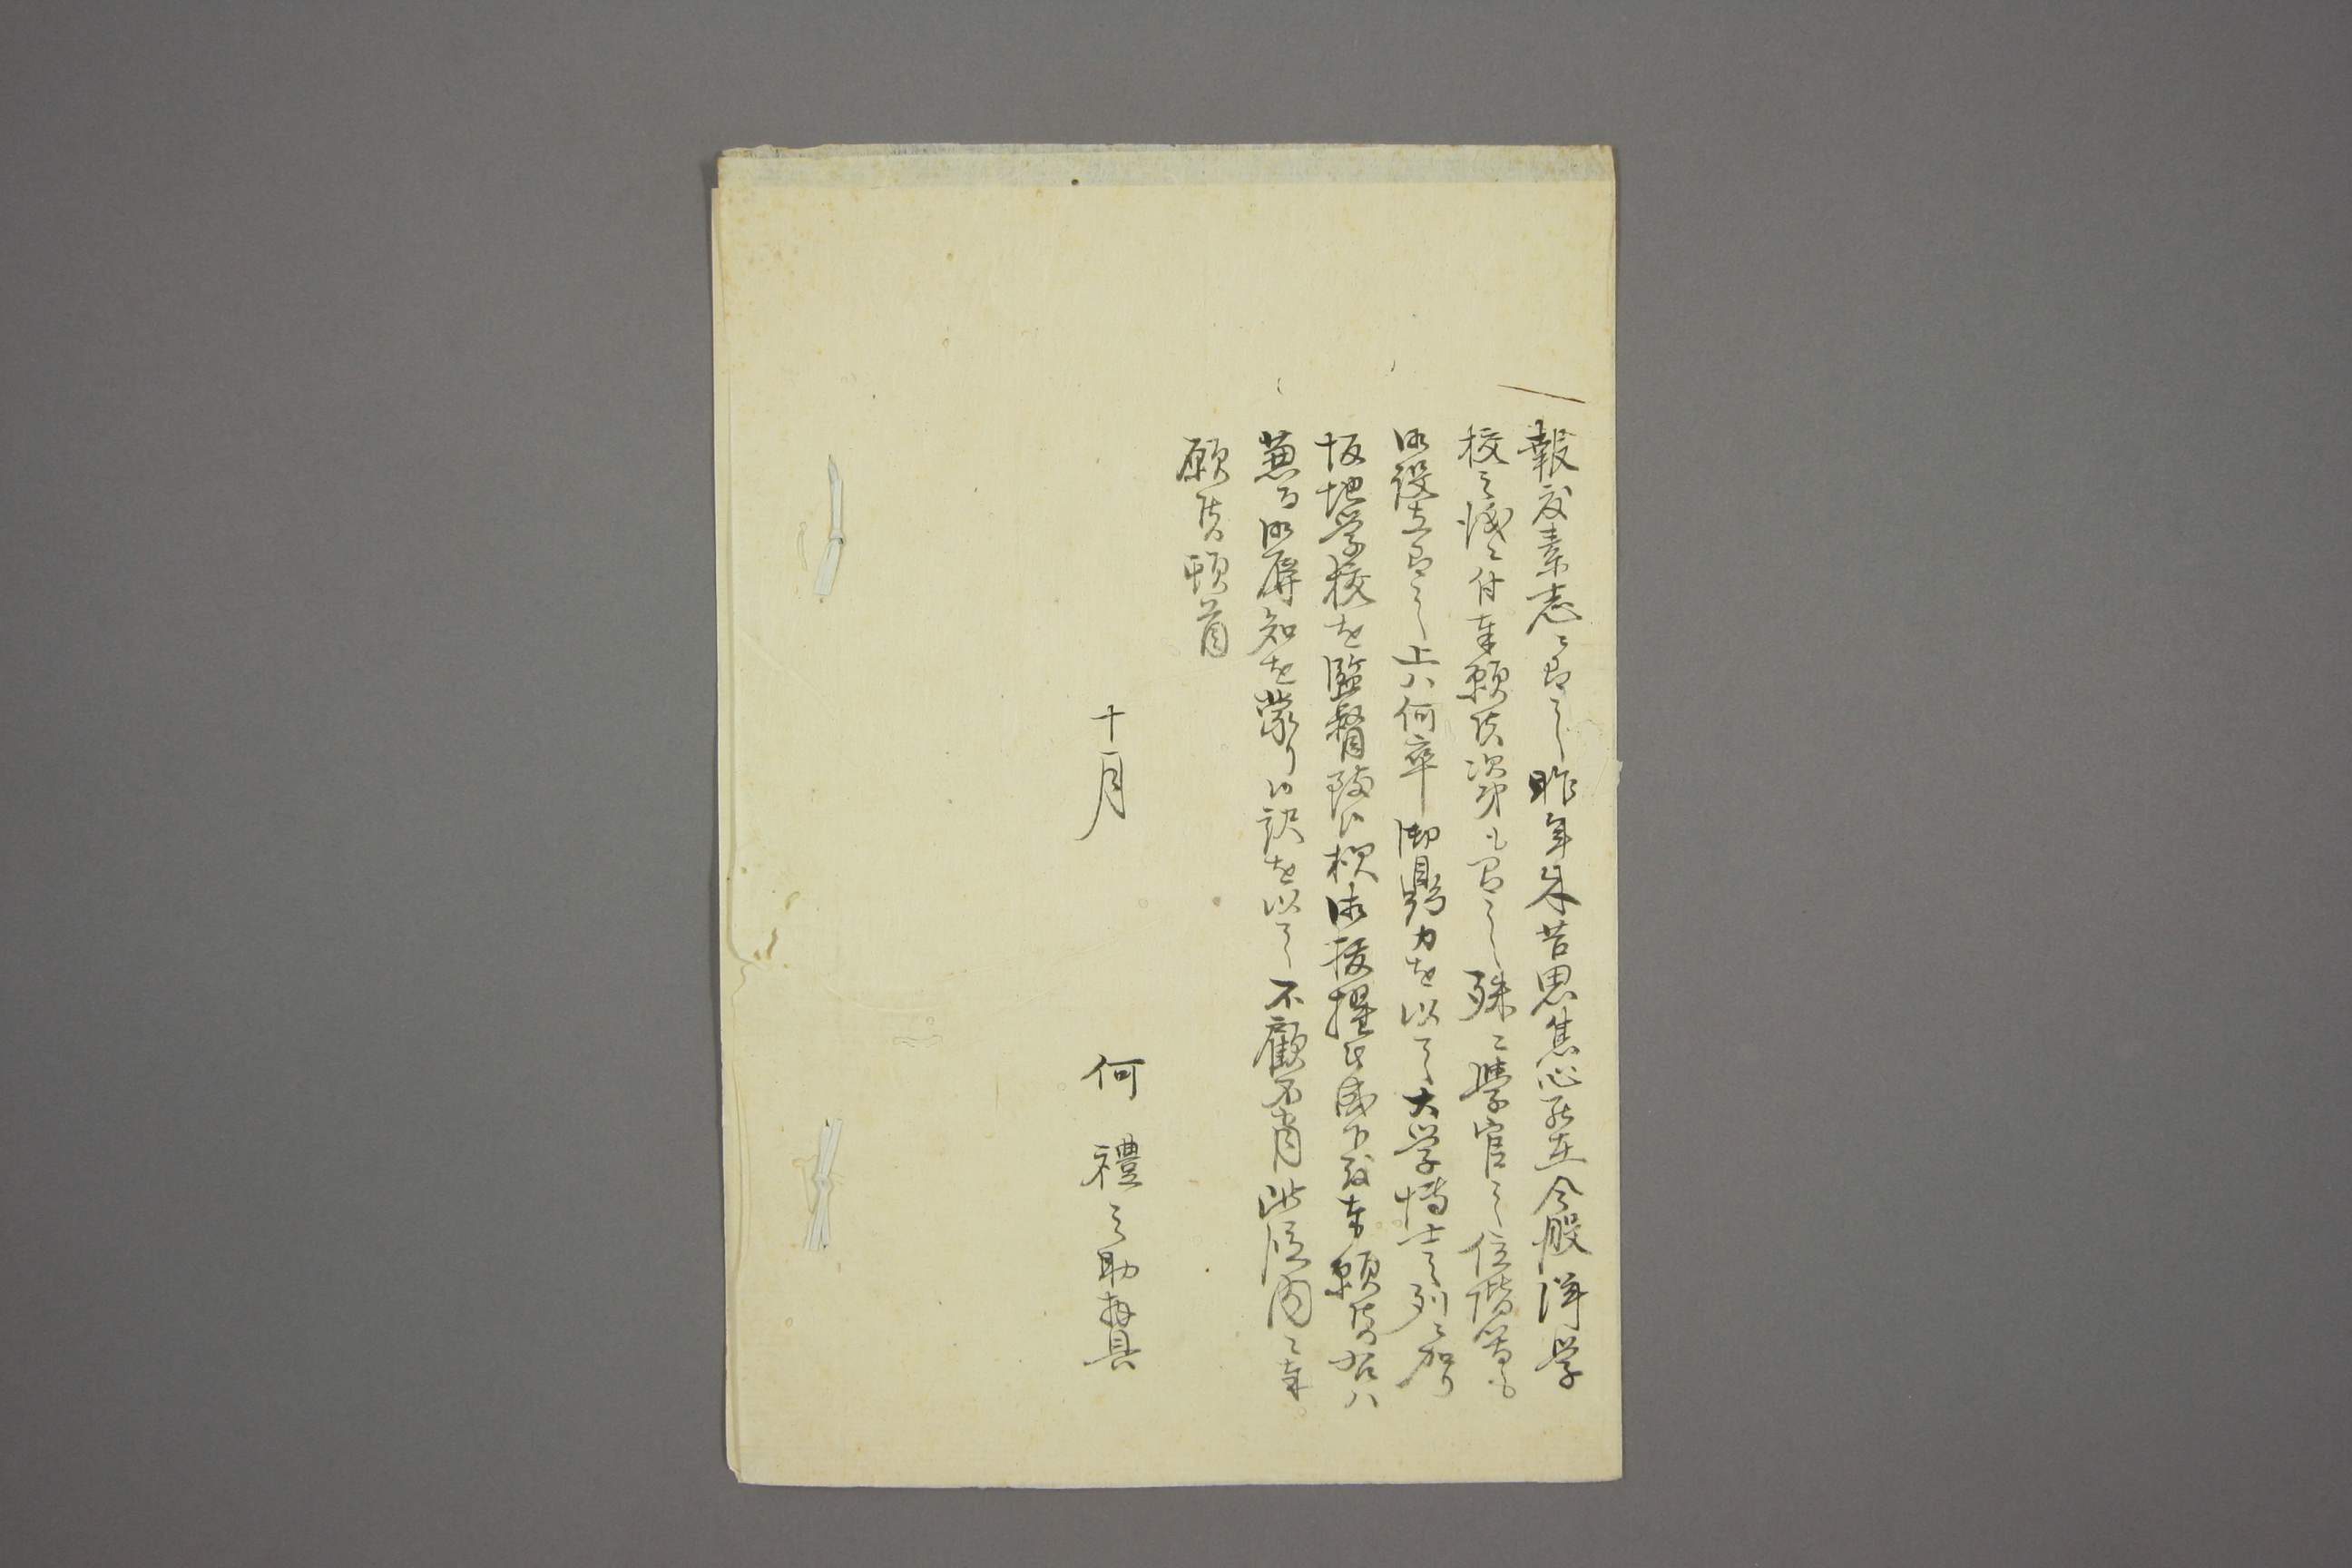 報效素志ニ而已 昨年来苦思焦心罷在今般洋学
校之儀ニ付奉願候次第も有之殊ニ學官之位階等も
御設立有之上ハ何卒御鼎力を以て大学博士之列ニ加り
坂地学校を監督致候様御抜擢被成下度奉願候右ハ
兼而御辱知を蒙り候訳を以て不顧不肖此段内々奉
願候頓首
十月
何禮之助再具